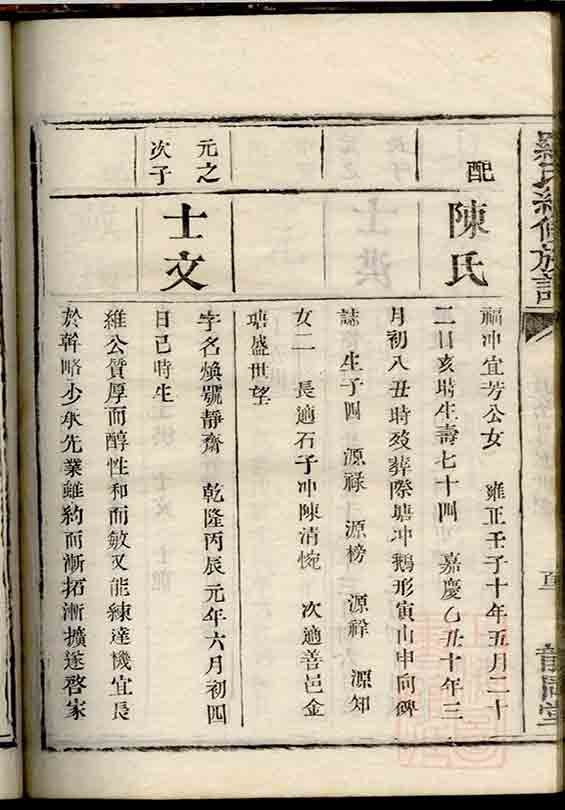 羅氏續修族譜
配
陳氏
福冲宜芳公女 雍正壬子十年五月二十
二日亥時生壽七十四 嘉慶乙丑十年三
月初八丑時歿葬際塘冲鵝形寅山申向碑
誌 生子四 源祿 源榜 源祥 源知
女二 長適石子冲陳清惋 次適善邑金
塘盛世望
元之
次子
士文
字名煥號靜齋 乾隆丙辰元年六月初四
日己時生
維公質厚而醇性和而敏又能練達機宜長
於幹略少承先業雖約而漸拓漸擴遂啓家